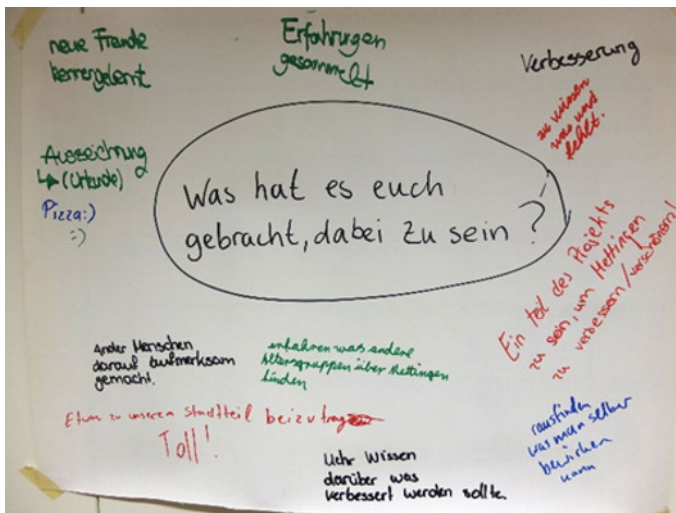 neue Freunde
kennengelernt
Erfahrungen
gesammelt
Verbesserung
zu wissen
was uns
fehlt.
Auszeichnung
↳ (Urkunde)
Pizza:)
:)
Was hat es euch
gebracht, dabei zu sein?
Ein teil des Projekts
zu sein, um Mettingen
zu verbessern/verschönern!
Ander Menschen
darauf Aufmerksam
gemacht.
erfahren was andere
Altersgruppen über Mettingen
finden
Etwas zu unserem Stadtteil beizutragen
Toll!
rausfinden
was man selber
bewirken
kann
Mehr Wissen
darüber was
verbessert werden sollte.